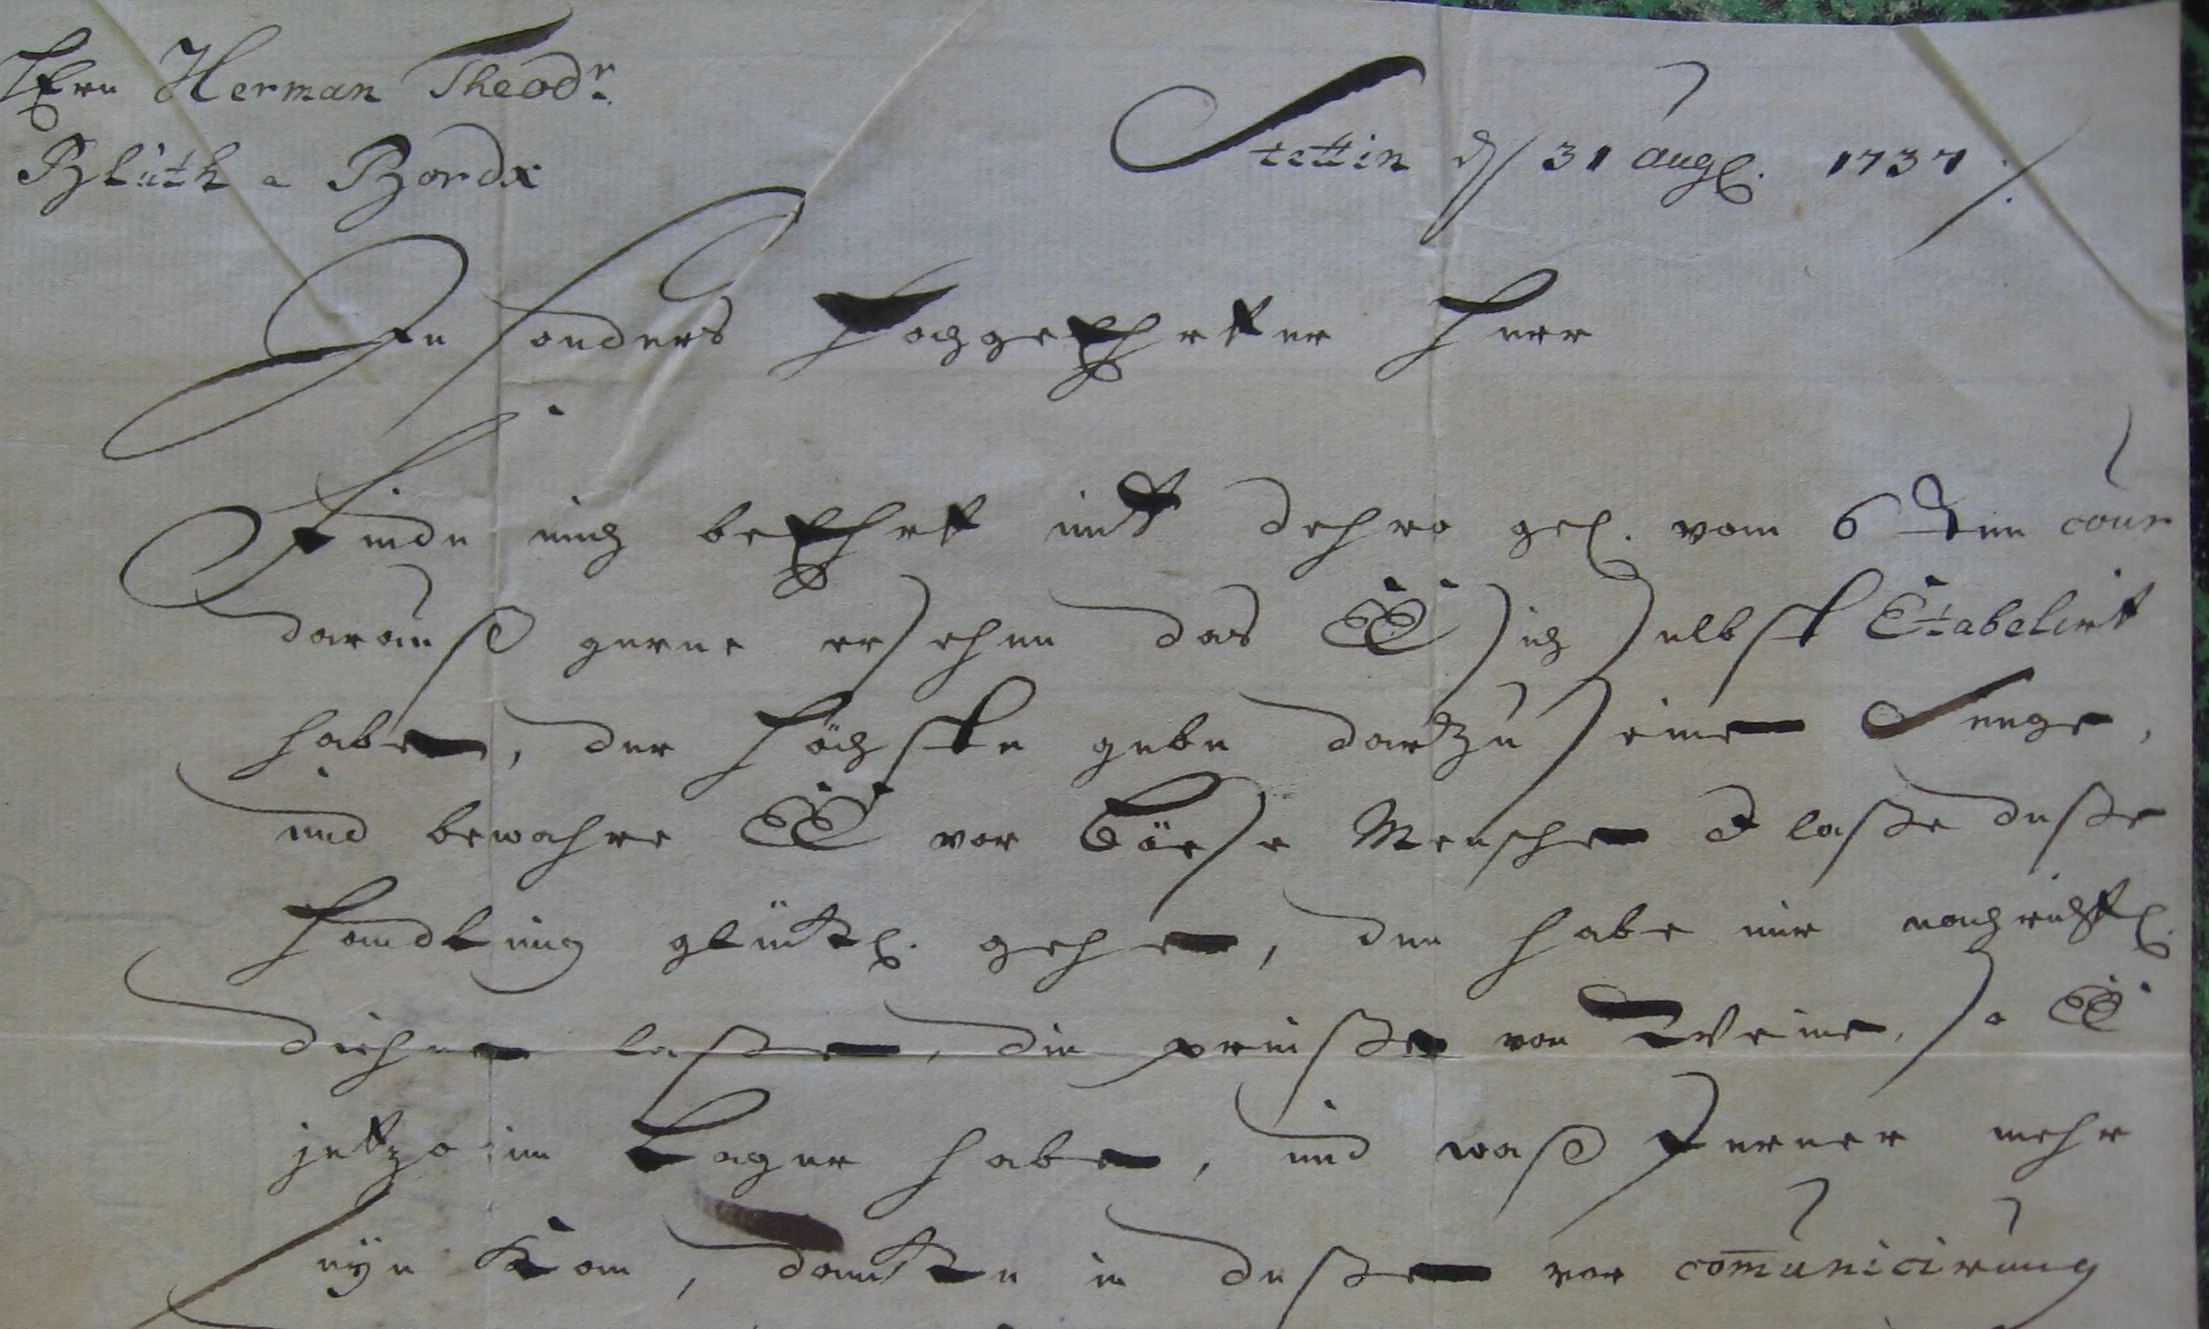 HErn Herman Theodr.
Blüth a Bordx
Stettin d 31 augl. 1737
In sonders Hochgeehrtter Herr
Finde mich beehrt mitt dehro gel. vom 6 ten cour
darauß gerne ersehen das EE sich selbst Etabelirt
haben, der Höchste gebe dartzu seinen Seege,
und bewahre EE vor böese Menschen & laße deße
Handlung glückl. gehen, den habe mir nachrichtl.
diehnen laßen, die preißen von Weinen, so EE
jetzo im Lager haben, und waß Ferner mehr
seyn kan, dancke in deßen vor comunicirung